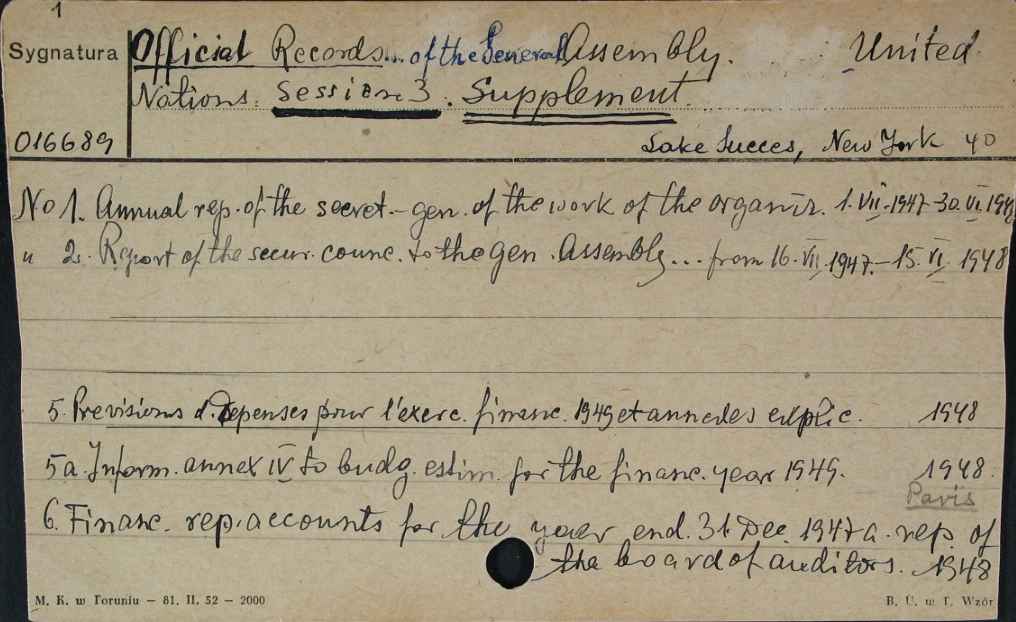 1
Sygnatura Official Records... of the General Assembly. United
Nations. Session 3. Supplement.
016689 Lake Succes, New York 40
No 1. Annual rep. of the secret.-gen. of the work of the organiz. 1.VII.1947-30.VI.1948
" 2. Report of the secur. counc. to the gen. Assembly... from 16.VII.1947.-15.VI.1948
5. Previsions d. Depenses pour l'exerc. financ. 1949 et explic. 1948
5a. Inform. annex IV to budg. estim. for the financ. year 1949. 1948.
Paris
6. Financ. rep. accounts for the year end. 31. Dec. 1947 a. rep. of
the board of auditors. 1948
M. K. w Toruniu — 81. II. 52 — 2000 B. U. w T. Wzór